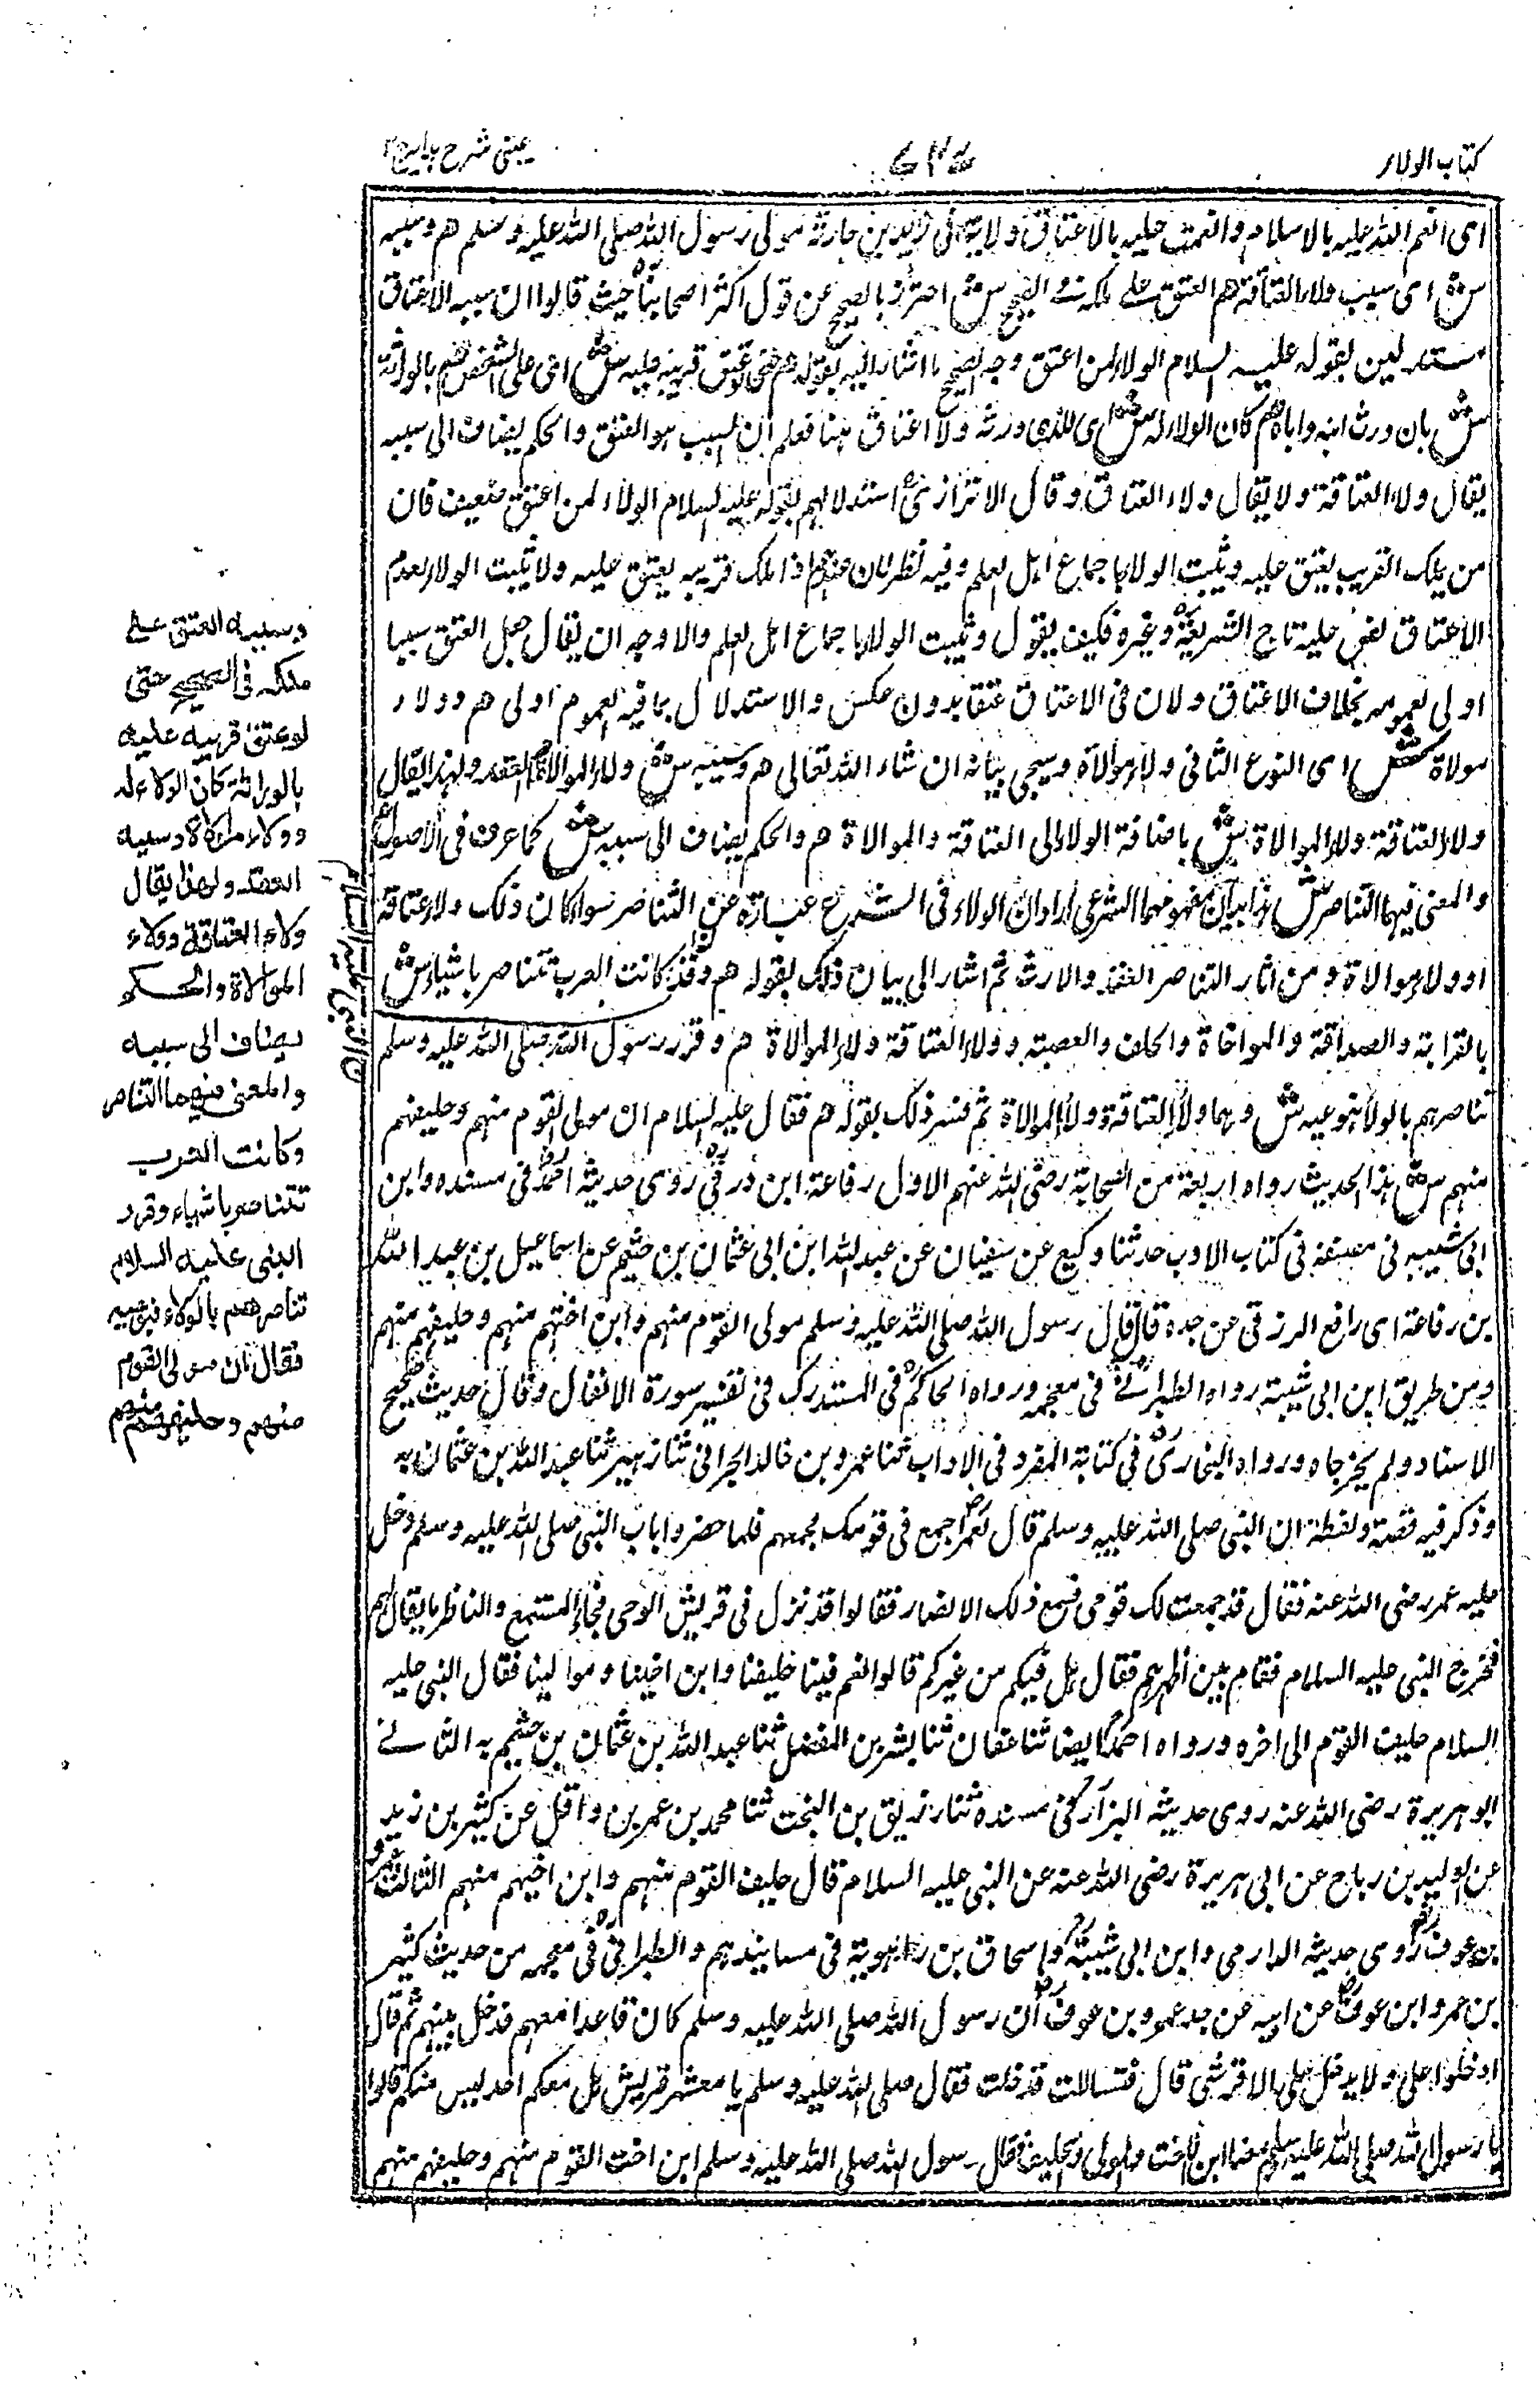 كتاب الولاء
عينى شرح هداية ج ٣
اى انعم الله عليه بالاسلام وانعمت عليه بالاعتاق والآية فى زيد بن حارثة مولى رسول الله صلى الله عليه وسلم هم وسببه
ش اى سبب ولاء العتاقة هم العتق على ملكه فى الصحيح ش احترز بالصحيح عن قول اكثر اصحابنا حيث قالوا ان سببه الاعتاق
مستدلين بقوله عليه السلام الولاء لمن اعتق وجه الصحيح ما اشار اليه بقوله هم حتى لو عتق قريبه عليه ش اى على الشخص هم بالوراثة
ش بان ورث ابنه واباه هم كان الولاء له ش اى للذى ورثه ولا اعتاق هنا فعلم ان السبب هو العتق والحكم يضاف الى سببه
يقال ولاء العتاقة ولا يقال ولاء العتاق وقال الاترازى استدلالهم بقوله عليه السلام الولاء لمن اعتق ضعيف فان
من يملك القريب يعتق عليه ويثبت الولاء باجماع اهل العلم وفيه نظر لان عندهم اذا ملك قريبه يعتق عليه ولا يثبت الولاء لعدم
الاعتاق نص عليه تاج الشريعة وغيره فكيف يقول ويثبت الولاء باجماع اهل العلم والاوجه ان يقال جعل العتق سببا
اولى لعمومه بخلاف الاعتاق ولان فى الاعتاق عتقا بدون عكس والاستدلال بما فيه العموم اولى هم وولاء
موالاة ش اى النوع الثانى ولاء موالاة وسيجى بيانه ان شاء الله تعالى هم وسببه ش ولاء الموالاة هم العقد ولهذا يقال
ولاء العتاقة وولاء الموالاة ش باضافة الولاء الى العتاقة والموالاة هم والحكم يضاف الى سببه ش كما عرف فى الاصول
والمعنى فيهما التناصر ش هذا بيان مفهومهما الشرعى اراد ان الولاء فى الشرع عبارة عن التناصر سواء كان ذلك ولاء عتاقة
او ولاء موالاة ومن اثار التناصر العقل والارث ثم اشار الى بيان ذلك بقوله هم وقد كانت العرب تتناصر باشياء ش
بالقرابة والصداقة والمواخاة والحلف والعصبة وولاء العتاقة وولاء الموالاة هم وقرر رسول الله صلى الله عليه وسلم
تناصرهم بالولاء بنوعيه ش وهما ولاء العتاقة وولاء الموالاة ثم فسر ذلك بقوله هم فقال عليه السلام ان مولى القوم منهم وحليفهم
منهم ش هذا الحديث رواه اربعة من الصحابة رضى الله عنهم الاول رفاعة ابن ذرقى روى حديثه احمد فى مسنده وابن
ابى شيبه فى مصنفه فى كتاب الادب حدثنا وكيع عن سفيان عن عبد الله ابن ابى عثمان بن خثيم عن اسماعيل بن عبد الله
بن رفاعة اى رافع الزرقى عن جده قال قال رسول الله صلى الله عليه وسلم مولى القوم منهم وابن اختهم منهم وحليفهم منهم
ومن طريق ابن ابى شيبة رواه الطبرانى فى معجمه ورواه الحاكم فى المستدرك فى تفسير سورة الانفال وقال حديث صحيح
الاسناد ولم يخرجاه ورواه البخارى فى كتابة المفرد فى الاداب ثنا عمرو بن خالد الحرانى ثنا زهير ثنا عبد الله بن عثمان به
وذكر فيه قصة ولفظة ان النبى صلى الله عليه وسلم قال لعمر اجمع فى قومك فجمعهم فلما حضروا باب النبى صلى الله عليه وسلم دخل
عليه عمر رضى الله عنه فقال قد جمعت لك قومى فسمع ذلك الانصار فقالوا قد نزل فى قريش الوحى فجاء المستمع والناظر ما يقال لهم
فخرج النبى عليه السلام فقام بين اظهرهم فقال هل فيكم من غيركم قالوا نعم فينا حليفنا وابن اخينا وموالينا فقال النبى عليه
السلام حليف القوم الى اخره ورواه احمد ايضا ثنا عفان ثنا بشر بن المفضل ثنا عبد الله بن عثمان بن خثيم به الثانى
ابو هريرة رضى الله عنه روى حديثه البزار فى مسنده ثنا رزيق بن البخت ثنا محمد بن عمر بن واقل عن كثير بن زيد
عن الوليد بن رباح عن ابى هريرة رضى الله عنه عن النبى عليه السلام قال حليف القوم منهم وابن اخيهم منهم الثالث عمرو
بن عوف روى حديثه الدارمى وابن ابى شيبة واسحاق بن راهوية فى مسانيدهم والطبرانى فى معجمه من حديث كثير
بن عمرو ابن عوف عن ابيه عن جد عمرو بن عوف ان رسول الله صلى الله عليه وسلم كان قاعدا معهم فدخل بيتهم ثم قال
ادخلوا على ولا يدخل على الا قرشى قال فتسالت فدخلت فقال صلى الله عليه وسلم يا معشر قريش هل معكم احد ليس منكم قالوا
يا رسول الله صلى الله عليه وسلم معنا ابن الاخت والمولى والحليف فقال رسول الله صلى الله عليه وسلم ابن اخت القوم منهم وحليفهم منهم
وسببه العتق على
ملكه فى الصحيح حتى
لو عتق قريبه عليه
بالوراثة كان الولاء له
وولاء موالاة وسببه
العقد ولهذا يقال
ولاء العتاقة وولاء
الموالاة والحكم
يضاف الى سببه
والمعنى فيهما التناصر
وكانت العرب
تتناصر باشياء وقرر
النبى عليه السلام
تناصرهم بالولاء بنوعيه
فقال ان مولى القوم
منهم وحليفهم منهم